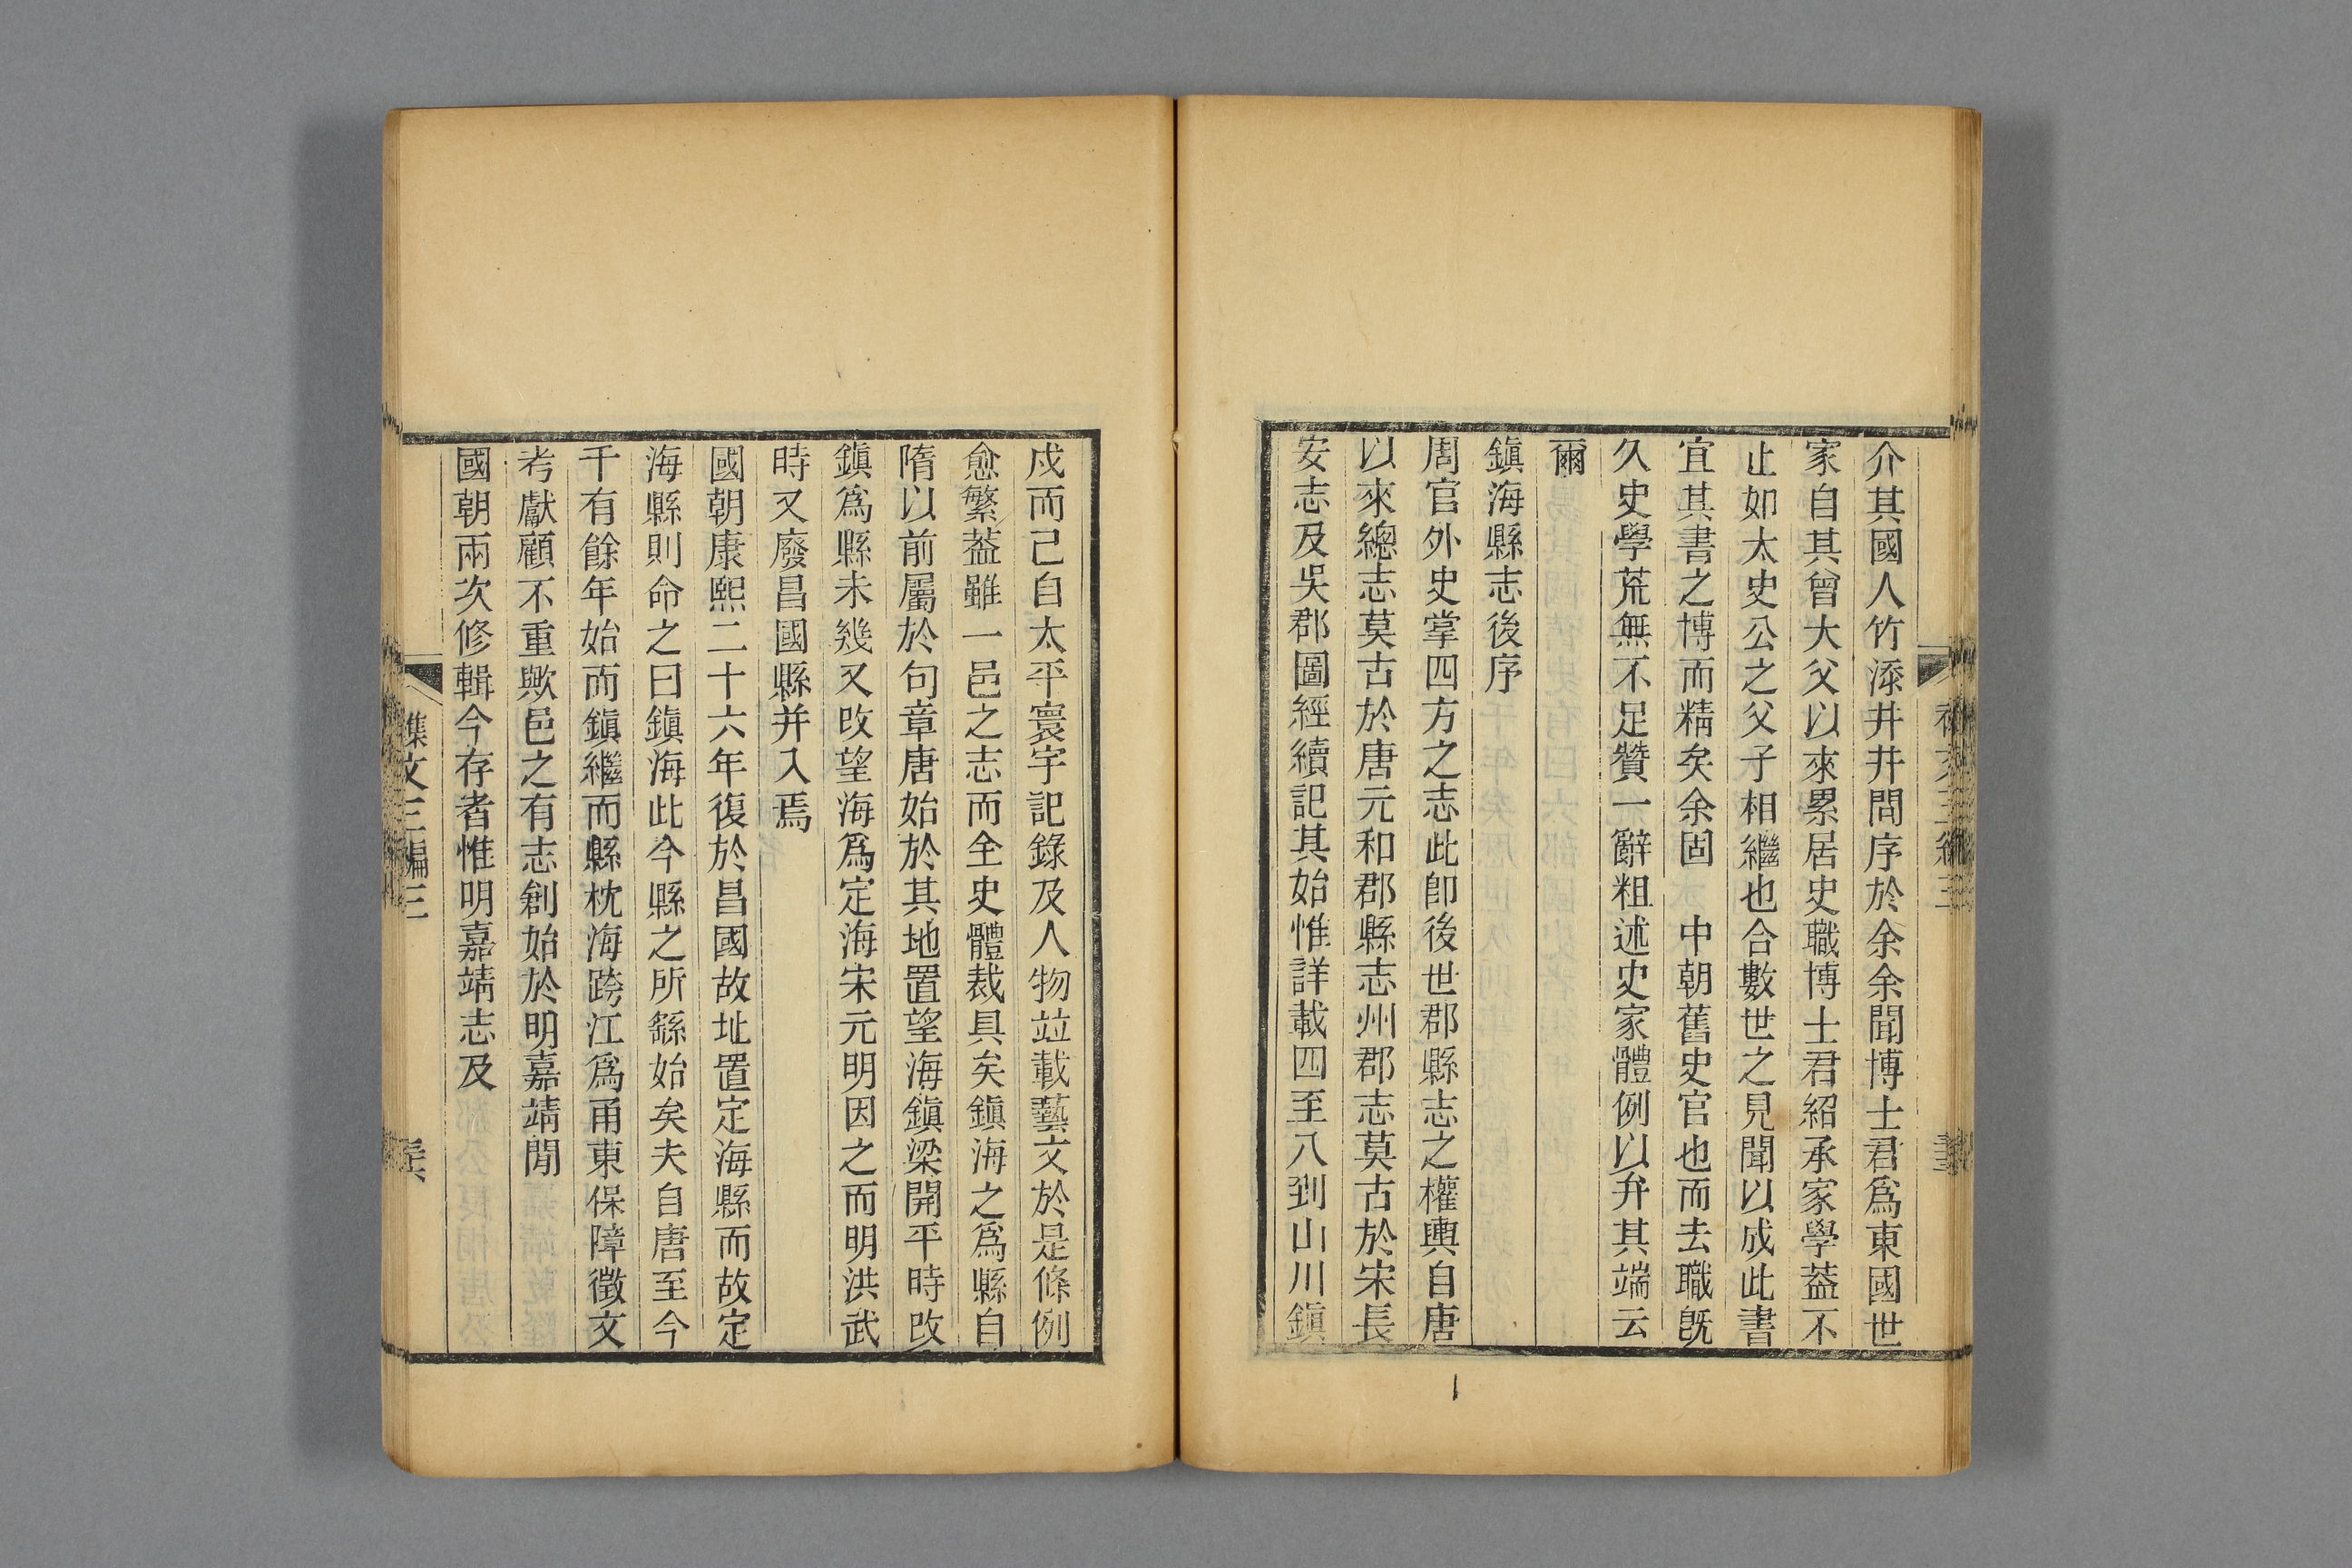 介其國人竹添井井問序於余余聞博士君爲東國世
家自其曾大父以來累居史職博士君紹承家學葢不
止如太史公之父子相繼也合數世之見聞以成此書
宜其書之博而精矣余固　中朝舊史官也而去職旣
久史學荒蕪不足贊一辭粗述史家體例以弁其端云
爾
鎭海縣志後序
周官外史掌四方之志此卽後世郡縣志之權輿自唐
以來總志莫古於唐元和郡縣志州郡志莫古於宋長
安志及吳郡圖經續記其始惟詳載四至八到山川鎭
戍而已自太平寰宇記錄及人物竝載藝文於是條例
愈繁葢雖一邑之志而全史體裁具矣鎭海之爲縣自
隋以前屬於句章唐始於其地置望海鎭梁開平時改
鎭爲縣未幾又改望海爲定海宋元明因之而明洪武
時又廢昌國縣并入焉
國朝康熙二十六年復於昌國故址置定海縣而故定
海縣則命之曰鎭海此今縣之所繇始矣夫自唐至今
千有餘年始而鎭繼而縣枕海跨江爲甬東保障徵文
考獻顧不重歟邑之有志創始於明嘉靖閒
國朝兩次修輯今存者惟明嘉靖志及
集文三編三